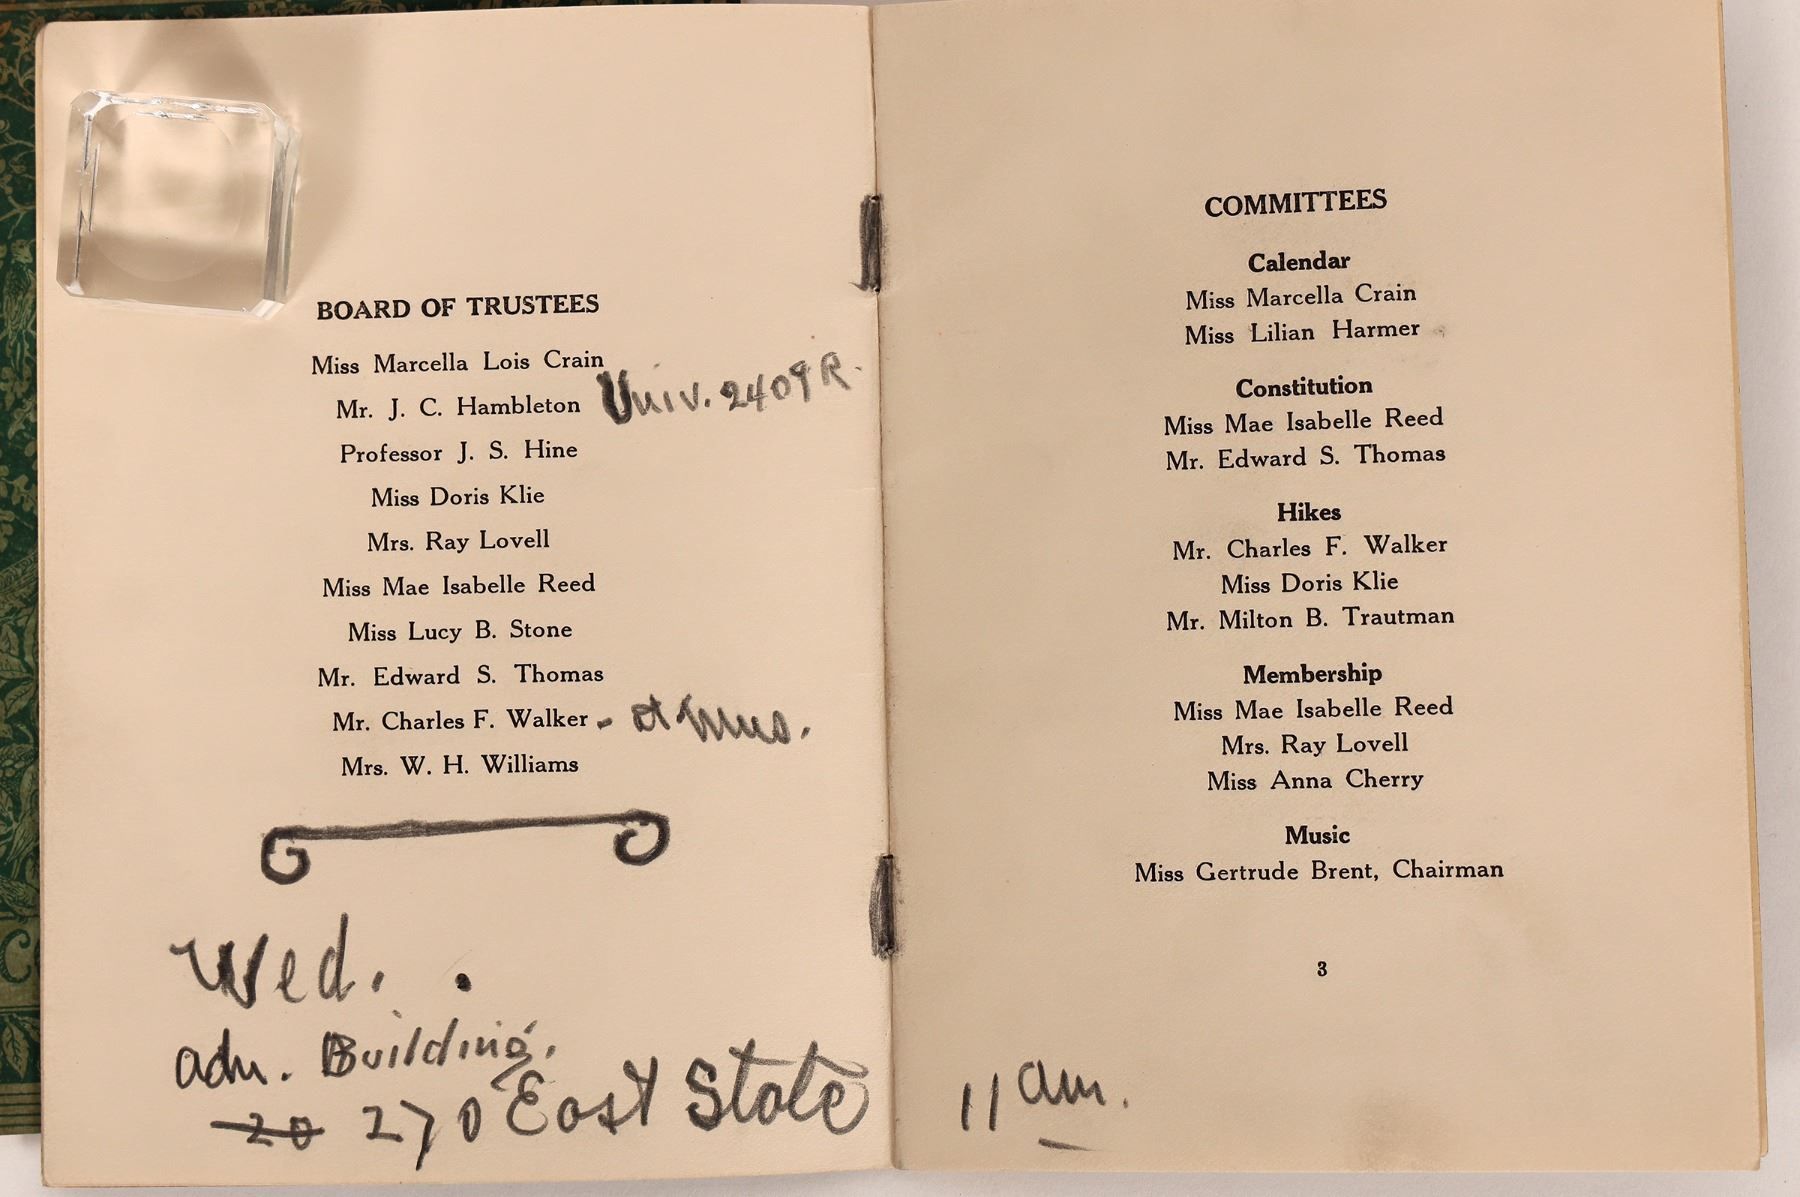 BOARD OF TRUSTEES
Miss Marcella Lois Crain
Mr. J. C. Hambleton Univ. 2409 R.
Professor J. S. Hine
Miss Doris Klie
Mrs. Ray Lovell
Miss Mae Isabelle Reed
Miss Lucy B. Stone
Mr. Edward S. Thomas
Mr. Charles F. Walker - at Mus.
Mrs. W. H. Williams
Wed.
adm. Building.
20 270 East State
COMMITTEES
Calendar
Miss Marcella Crain
Miss Lilian Harmer
Constitution
Miss Mae Isabelle Reed
Mr. Edward S. Thomas
Hikes
Mr. Charles F. Walker
Miss Doris Klie
Mr. Milton B. Trautman
Membership
Miss Mae Isabelle Reed
Mrs. Ray Lovell
Miss Anna Cherry
Music
Miss Gertrude Brent, Chairman
3
11 am.